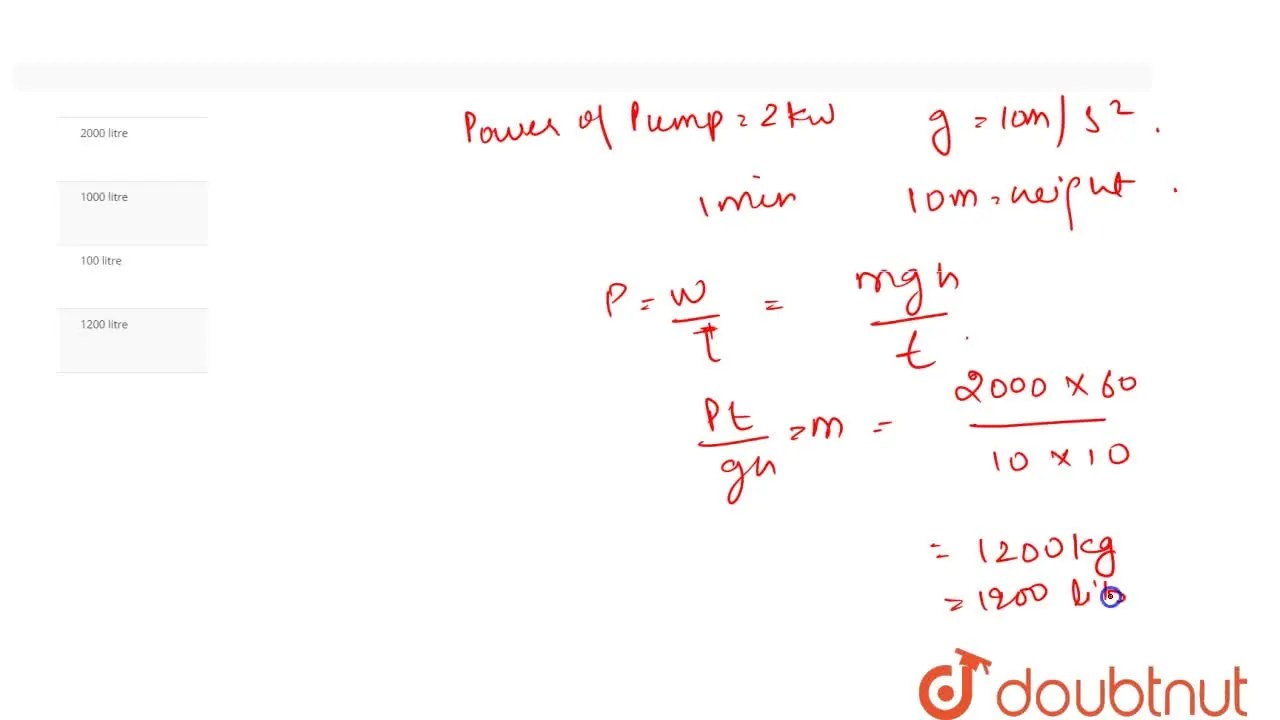 2000 litre
1000 litre
100 litre
1200 litre
Power of Pump = 2 kw g = 10m/s² .
1 min 10m = height .
P = W/T = mgh/t .
Pt/gh = m = 2000 × 60/10 × 10
= 1200 kg
= 1200 lit
doubtnut